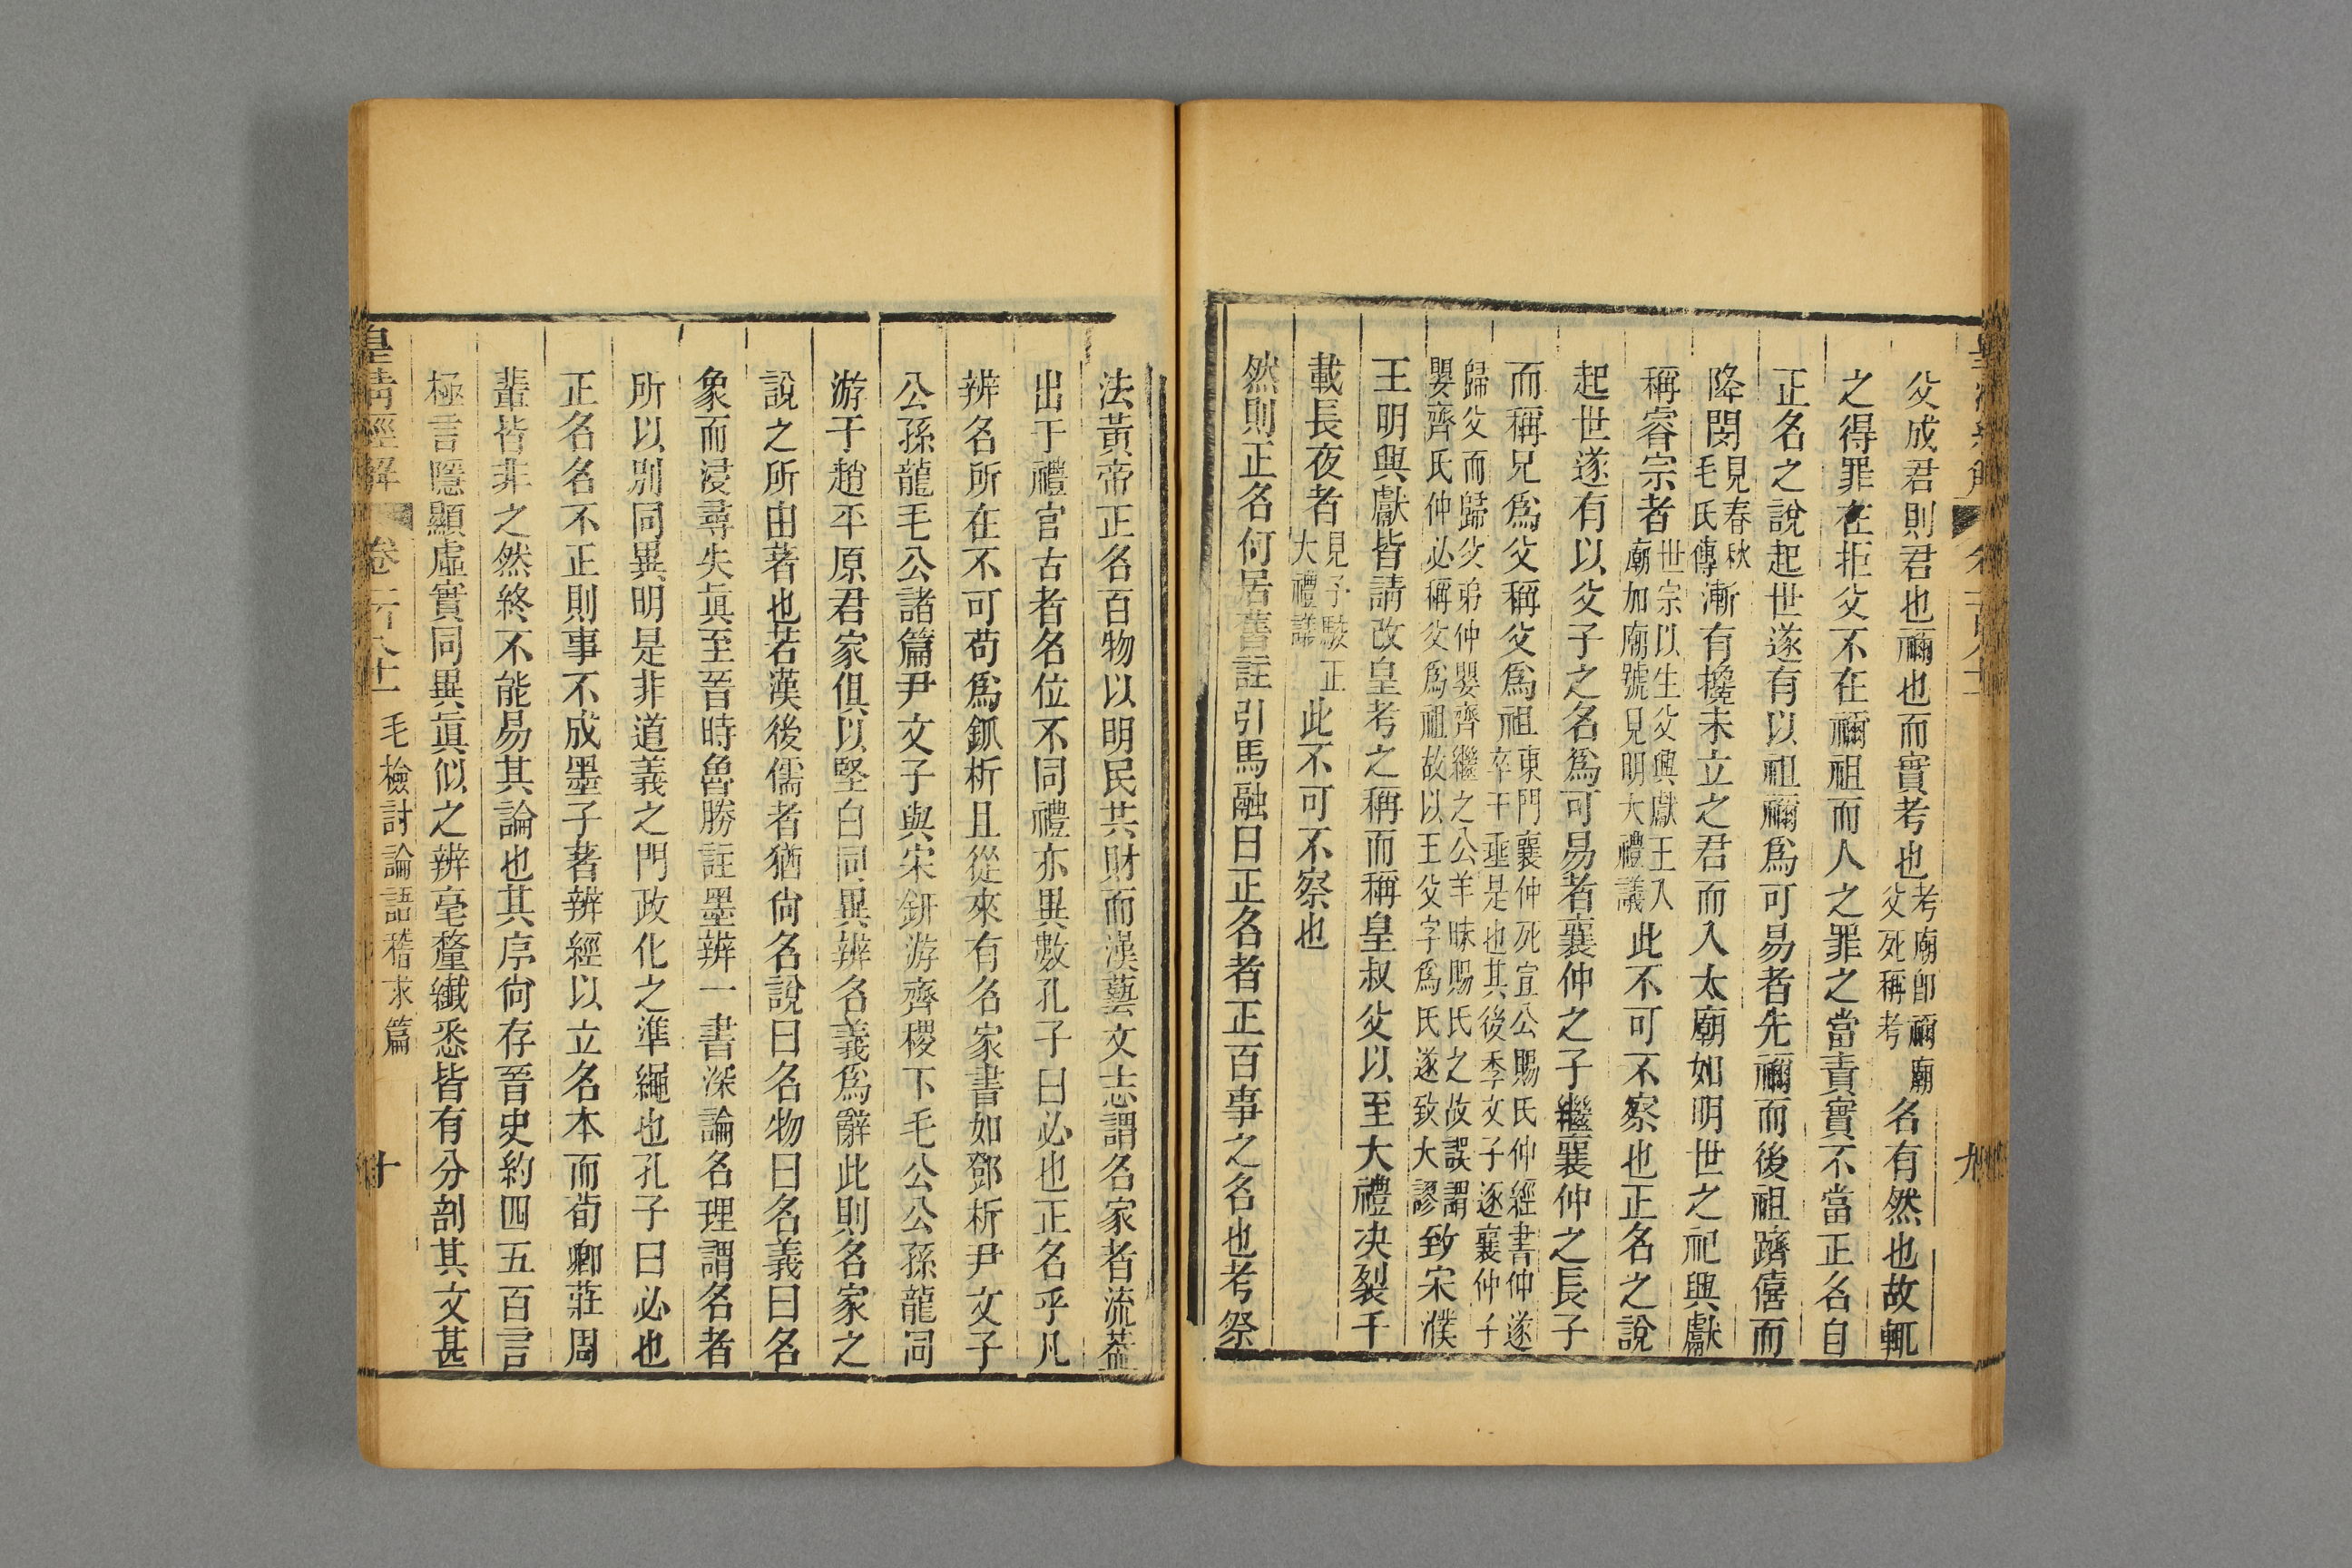 父成君則君也禰也而實考也考廟卽禰廟父死稱考名有然也故輒
之得罪在拒父不在禰祖而人之罪之當責實不當正名自
正名之說起世遂有以祖禰爲可易者先禰而後祖躋僖而
降閔見春秋毛氏傳漸有攙未立之君而入太廟如明世之祀興獻
稱睿宗者世宗以生父興獻王入廟加廟號見明大禮議此不可不察也正名之說
起世遂有以父子之名爲可易者襄仲之子繼襄仲之長子
而稱兄爲父稱父爲祖東門襄仲死宣公賜氏仲經書仲遂卒于垂是也其後季文子逐襄仲子
歸父而歸父弟仲嬰齊繼之公羊昧賜氏之故誤謂嬰齊氏仲必稱父爲祖故以王父字爲氏遂致大謬致宋濮
王明興獻皆請改皇考之稱而稱皇叔父以至大禮決裂千
載長夜者見子駁正大禮議此不可不察也
然則正名何居舊註引馬融曰正名者正百事之名也考祭
九
法黃帝正名百物以明民共財而漢藝文志謂名家者流蓋
出于禮官古者名位不同禮亦異數孔子曰必也正名乎凡
辨名所在不可苟爲釽析且從來有名家書如鄧析尹文子
公孫龍毛公諸篇尹文子與宋鈃游齊稷下毛公公孫龍同
游于趙平原君家俱以堅白同異辨名義爲辭此則名家之
說之所由著也若漢後儒者猶尙名說曰名物曰名義曰名
象而浸尋失眞至晉時魯勝註墨辨一書深論名理謂名者
所以別同異明是非道義之門政化之準繩也孔子曰必也
正名名不正則事不成墨子著辨經以立名本而荀卿莊周
輩皆非之然終不能易其論也其序尙存晉史約四五百言
極言隱顯虛實同異眞似之辨毫釐纖悉皆有分剖其文甚
皇清經解 卷一百八十一 毛檢討論語稽求篇 十